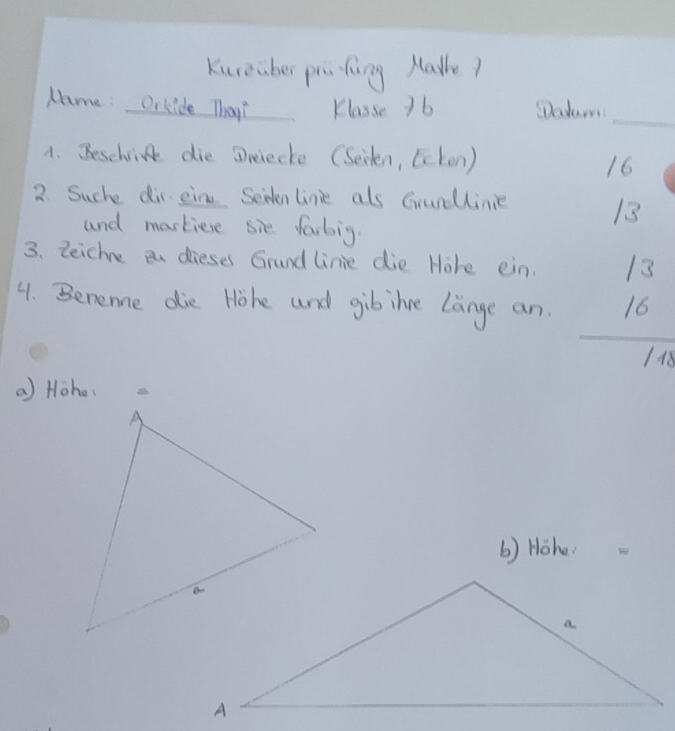 Kurzüberprüfung Mathe 7
Name: Orkide Thaqi Klasse 7b Datum:
1. Beschrifte die Dreiecke (Seiten, Ecken) /6
2. Suche dir eine Seitenlinie als Grundlinie /3
und markiere sie farbig.
3. Zeichne zu dieses Grundlinie die Höhe ein. /3
4. Benenne die Höhe und gib ihre Länge an. /6
/18
a) Höhe: =
A
a
b) Höhe: =
a
A